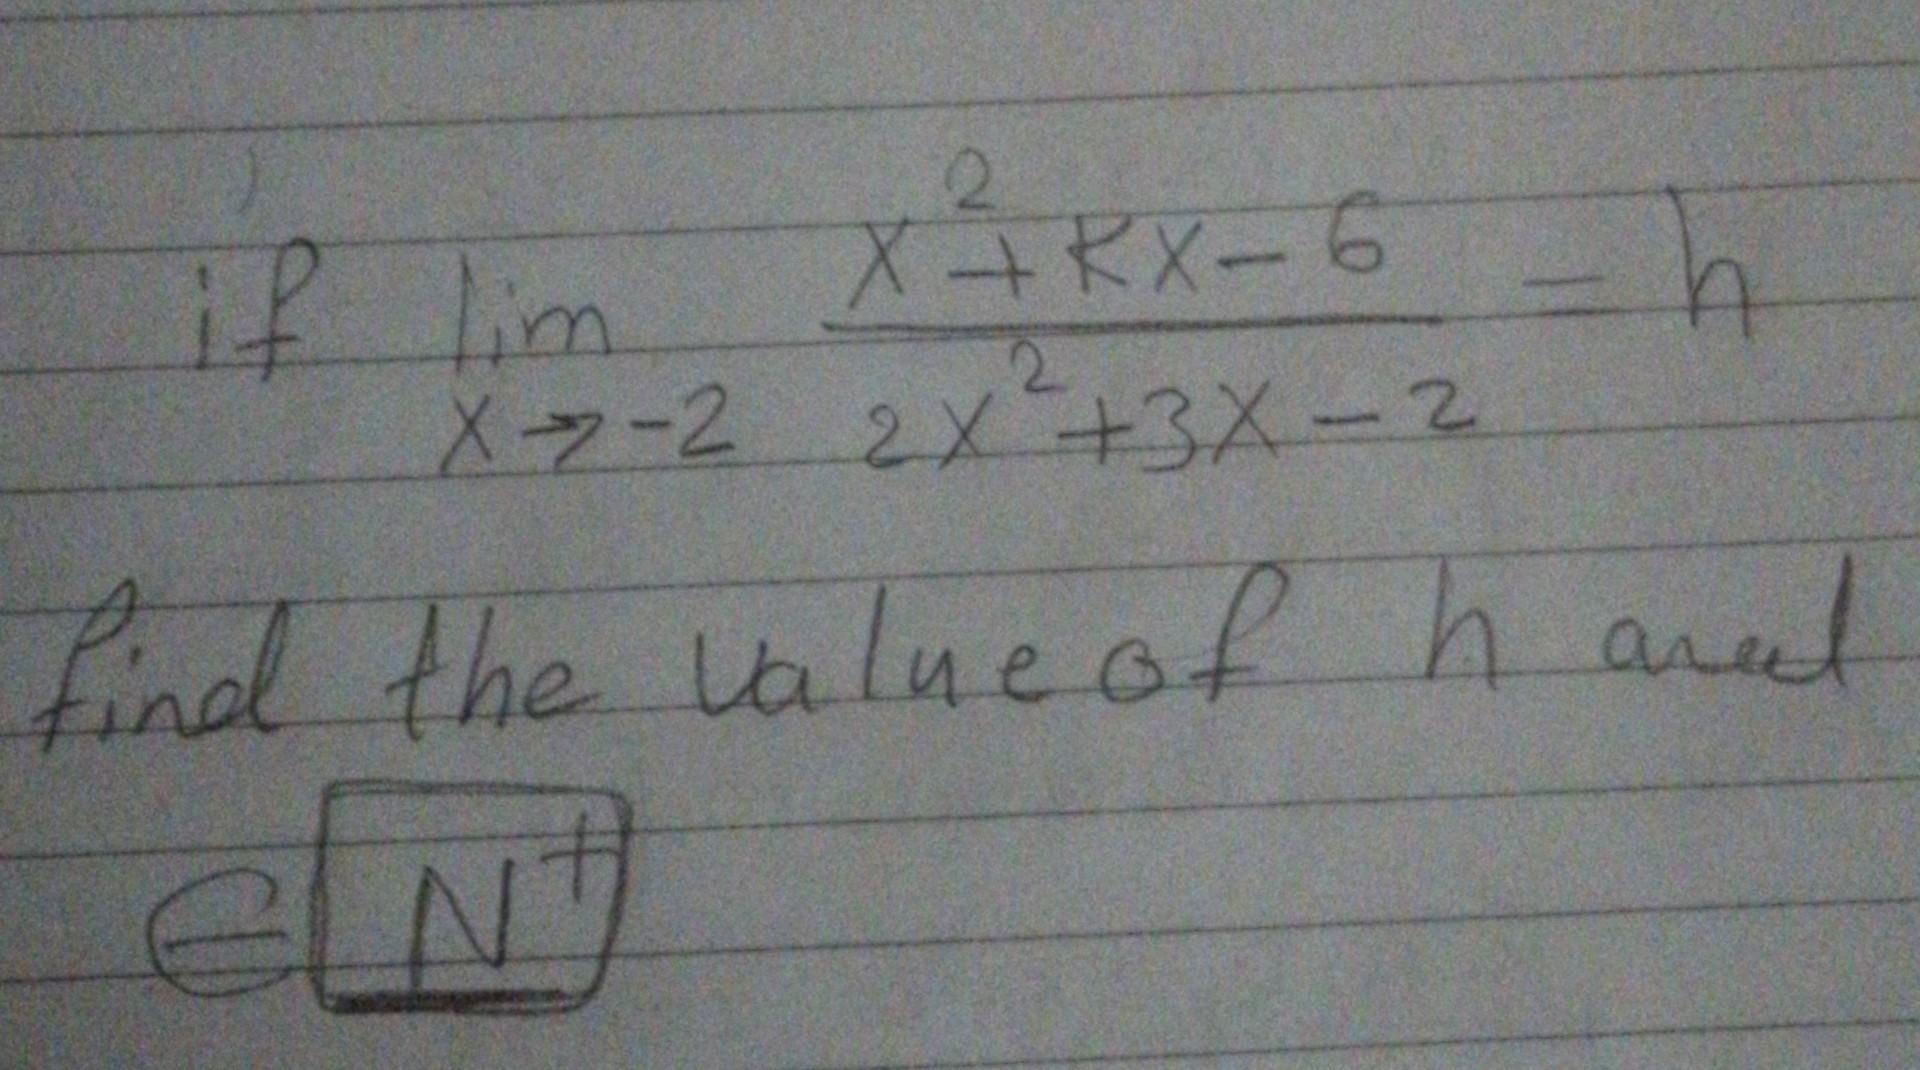 if lim x²+kx-6 = h
x→-2 2x²+3x-2
find the value of h and
∈ N⁺